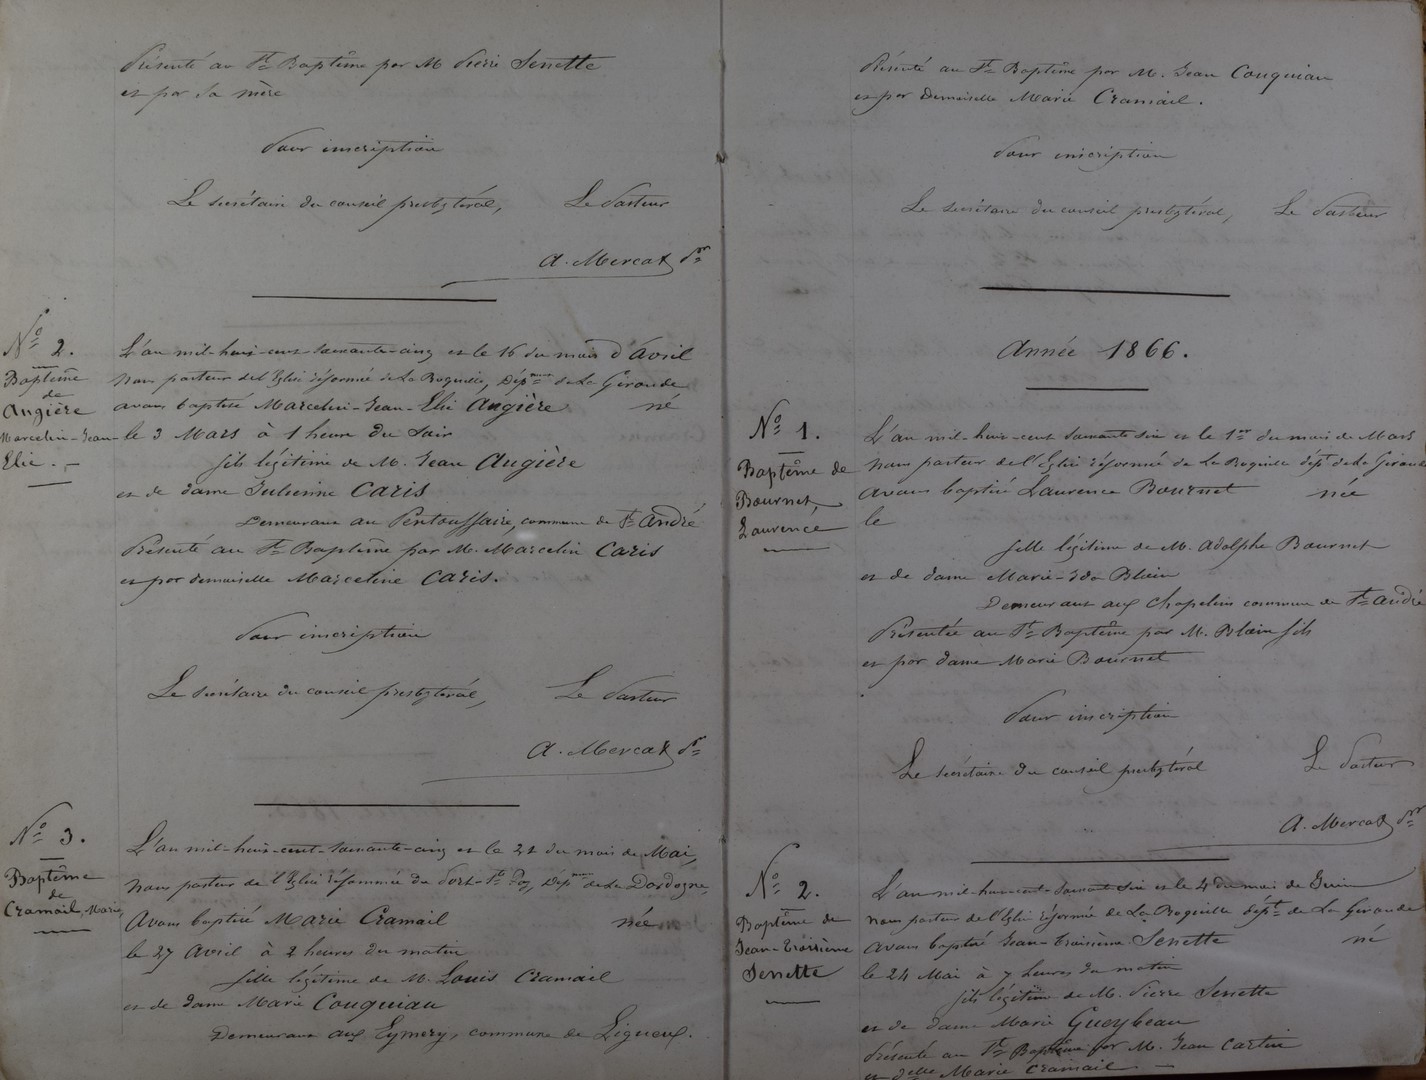 Présenté au St Baptême par M Pierre Senette
et par sa mère
Pour inscription
Le secrétaire du conseil presbytéral, Le Pasteur
A. Mercat pr
No 2.
Baptême
de
Angière
Marcelin-Jean-
Elie.-
L'an mil-huit-cent-soixante-cinq et le 16 du mois d'Avril
nous pasteur de l'Eglise réformée de La Roquille, Dépmt de La Gironde
avons baptisé Marcelin-Jean-Elie Angière né
le 3 Mars à 1 heure du soir
fils légitime de M. Jean Angière
et de dame Julienne Caris
Demeurant au Pentoussaire, commune de St André
Présenté au St Baptême par M. Marcelin Caris
et par demoiselle Marceline Caris.
Pour inscription
Le secrétaire du conseil presbytéral, Le Pasteur
A. Mercat pr
No 3.
Baptême
de
Cramail, Marie
L'an mil-huit-cent-soixante-cinq et le 21 du mois de Mai,
nous pasteur de l'Eglise réformée du Port-Ste Foy, Dépmt de La Dordogne,
Avons baptisé Marie Cramail née
le 27 Avril à 2 heures du matin
fille légitime de M. Louis Cramail
et de dame Marie Couquiau
Demeurant aux Eymery, commune de Ligueux.
Présenté au St Baptême par M. Jean Couquiau
et par Demoiselle Marie Cramail.
Pour inscription
Le secrétaire du conseil presbytéral, Le Pasteur
Année 1866.
No 1.
Baptême de
Bournet,
Laurence
L'an mil-huit-cent soixante six et le 1er du mois de Mars
nous pasteur de l'Eglise réformée de La Roquille dépt de La Gironde
avons baptisé Laurence Bournet née
le
fille légitime de M. Adolphe Bournet
et de dame Marie-Ida Blain
Demeurant aux Chapelins commune de St André
Présentée au St Baptême par M. Blain fils
et par dame Marie Bournet
Pour inscription
Le secrétaire du conseil presbytéral Le Pasteur
A. Mercat pr
No 2.
Baptême de
Jean-Troisième
Senette
L'an mil-huit-cent-soixante-six et le 4 du mois de Juin
nous pasteur de l'Eglise réformée de La Roquille dépt de La Gironde
avons baptisé Jean-troisième Senette né
le 24 Mai à 7 heures du matin
fils légitime de M. Pierre Senette
et de dame Marie Gueybeau
Présenté au St Baptême par M. Jean Cartin
et delle Marie Cramail